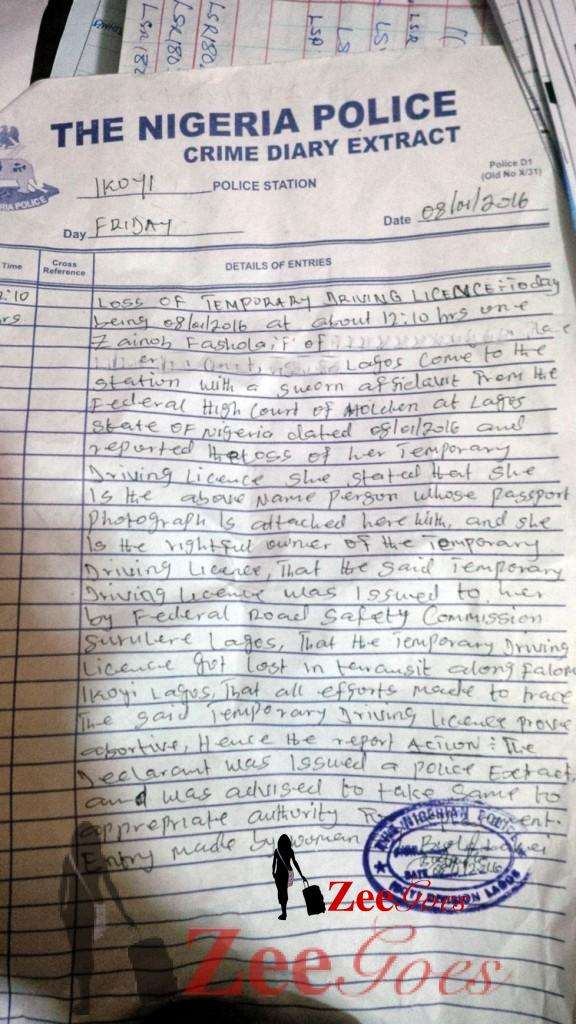 THE NIGERIA POLICE
CRIME DIARY EXTRACT
Police D1
(Old No X/31)
IKOYI POLICE STATION
RIA POLICE
Day FRIDAY Date 08/01/2016
Time Cross Reference DETAILS OF ENTRIES
2:10 LOSS OF TEMPORARY DRIVING LICENCE: Today
hrs being 08/01/2016 at about 12:10 hrs one
Zainob Fashola 'F' of
Lagos Come to the
station with a sworn affidavit from the
Federal High Court of Holden at Lagos
State OF Nigeria dated 08/01/2016 and
reported the loss of her Temporary
Driving Licence She stated that she
Is the above Name person whose passport
photograph Is attached here with, and she
Is the rightful owner of the Temporary
Driving Licence, That the said Temporary
Driving Licence was Issued to her
by Federal Road Safety Commission
Surulere Lagos, That the Temporary Driving
Licence got lost in transit along falom
Ikoyi Lagos, That all efforts made to trace
The said Temporary Driving licence prove
abortive, Hence the report Action: The
Declarant was Issued a police Extract
and was advised to take same to
apprepriate authority
Entry made by woman
THE NIGERIAN POLICE
DATE
IKOYI DIVISION LAGOS
ZeeGoes
ZeeGoes